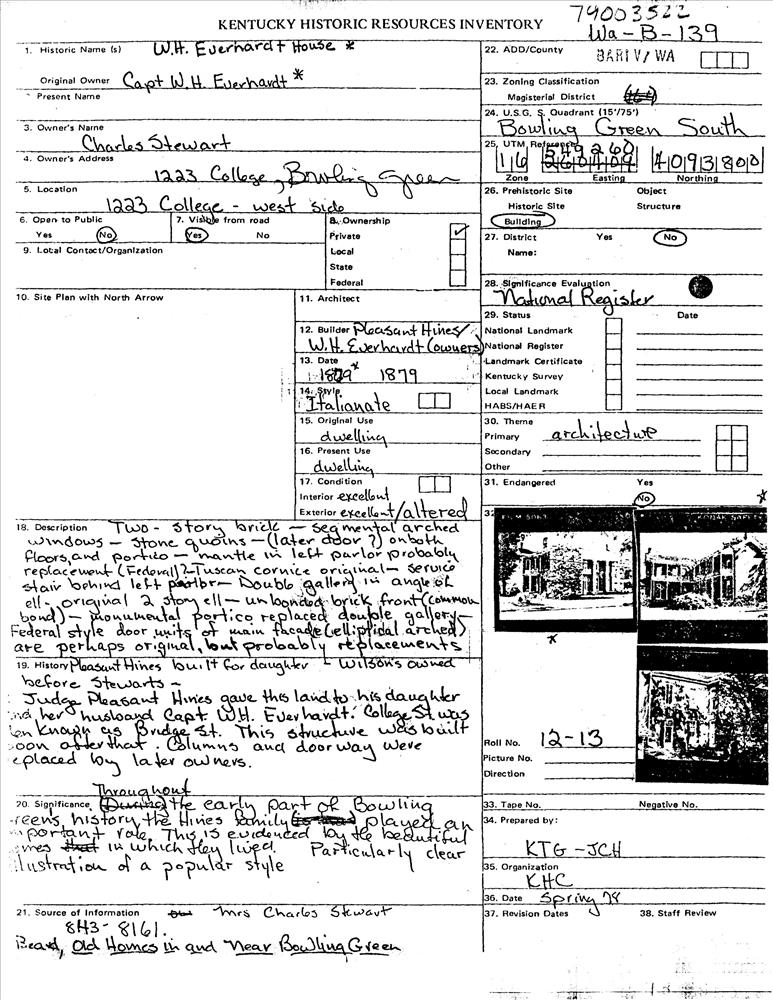 79003522
KENTUCKY HISTORIC RESOURCES INVENTORY
Wa-B-139
1. Historic Name (s) W.H. Everhardt House *
Original Owner Capt W.H. Everhardt *
Present Name
3. Owner's Name
Charles Stewart
4. Owner's Address
1223 College, Bowling Green
5. Location
1223 College - west side
6. Open to Public
Yes No
7. Visible from road
Yes No
8. Ownership
Private
Local
State
Federal
9. Local Contact/Organization
10. Site Plan with North Arrow
11. Architect
12. Builder Pleasant Hines/
W.H. Everhardt (owners)
13. Date
1879* 1879
14. Style
Italianate
15. Original Use
dwelling
16. Present Use
dwelling
17. Condition
Interior excellent
Exterior excellent/altered
18. Description Two-story brick - segmental arched
windows - stone quoins - (later door ?) on both
floors, and portico - mantle in left parlor probably
replacement (Federal) - Tuscan cornice original - service
stair behind left parlor - Double gallery in angle of
ell - original 2 story ell - unbonded brick front (common
bond) - monumental portico replaced double gallery -
Federal style door units of main facade (elliptical arched)
are perhaps original, but probably replacements
19. History Pleasant Hines built for daughter - Wilson's owned
before Stewarts -
Judge Pleasant Hines gave this land to his daughter
and her husband Capt. W.H. Everhardt. College St. was
then known as Bridge St. This structure was built
soon after that. Columns and doorway were
replaced by later owners.
Throughout
20. Significance the early part of Bowling
reens, history, the Hines family played an
mportant role. This is evidenced by the beautiful
omes in which they lived. Particularly clear
illustration of a popular style
21. Source of Information Mrs Charles Stewart
843-8161.
Beard, Old Homes in and Near Bowling Green
22. ADD/County
BARIV/WA
23. Zoning Classification
Magisterial District
24. U.S.G.S. Quadrant (15'/75')
Bowling Green South
25. UTM Reference
549260
16 4093800
Zone Easting Northing
26. Prehistoric Site Object
Historic Site Structure
Building
27. District Yes No
Name:
28. Significance Evaluation
National Register
29. Status Date
National Landmark
National Register
Landmark Certificate
Kentucky Survey
Local Landmark
HABS/HAER
30. Theme
Primary architecture
Secondary
Other
31. Endangered Yes
No
*
32
*
Roll No. 12-13
Picture No.
Direction
33. Tape No. Negative No.
34. Prepared by:
KTG-JCH
35. Organization
KHC
36. Date Spring 78
37. Revision Dates 38. Staff Review